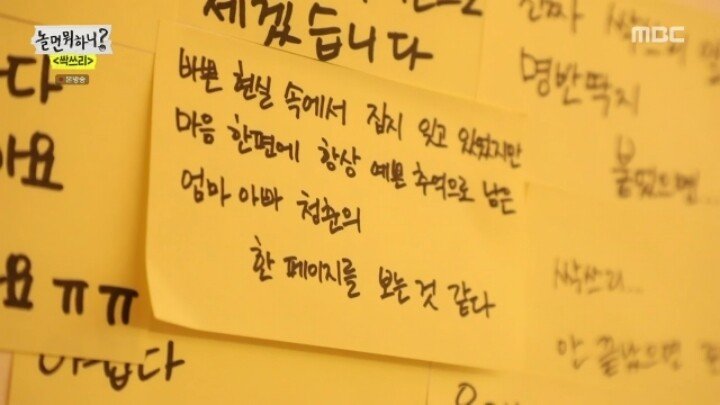 놀면뭐하니?
<싹쓰리>
MBC
겠습니다
진짜 싹쓰리
명반딱지
붙었으면...
바쁜 현실 속에서 잠시 잊고 있었지만
마음 한편에 항상 예쁜 추억으로 남은
엄마 아빠 청춘의
한 페이지를 보는 것 같다
다
요
요 ㅠㅠ
싹쓰리...
안 끝났으면